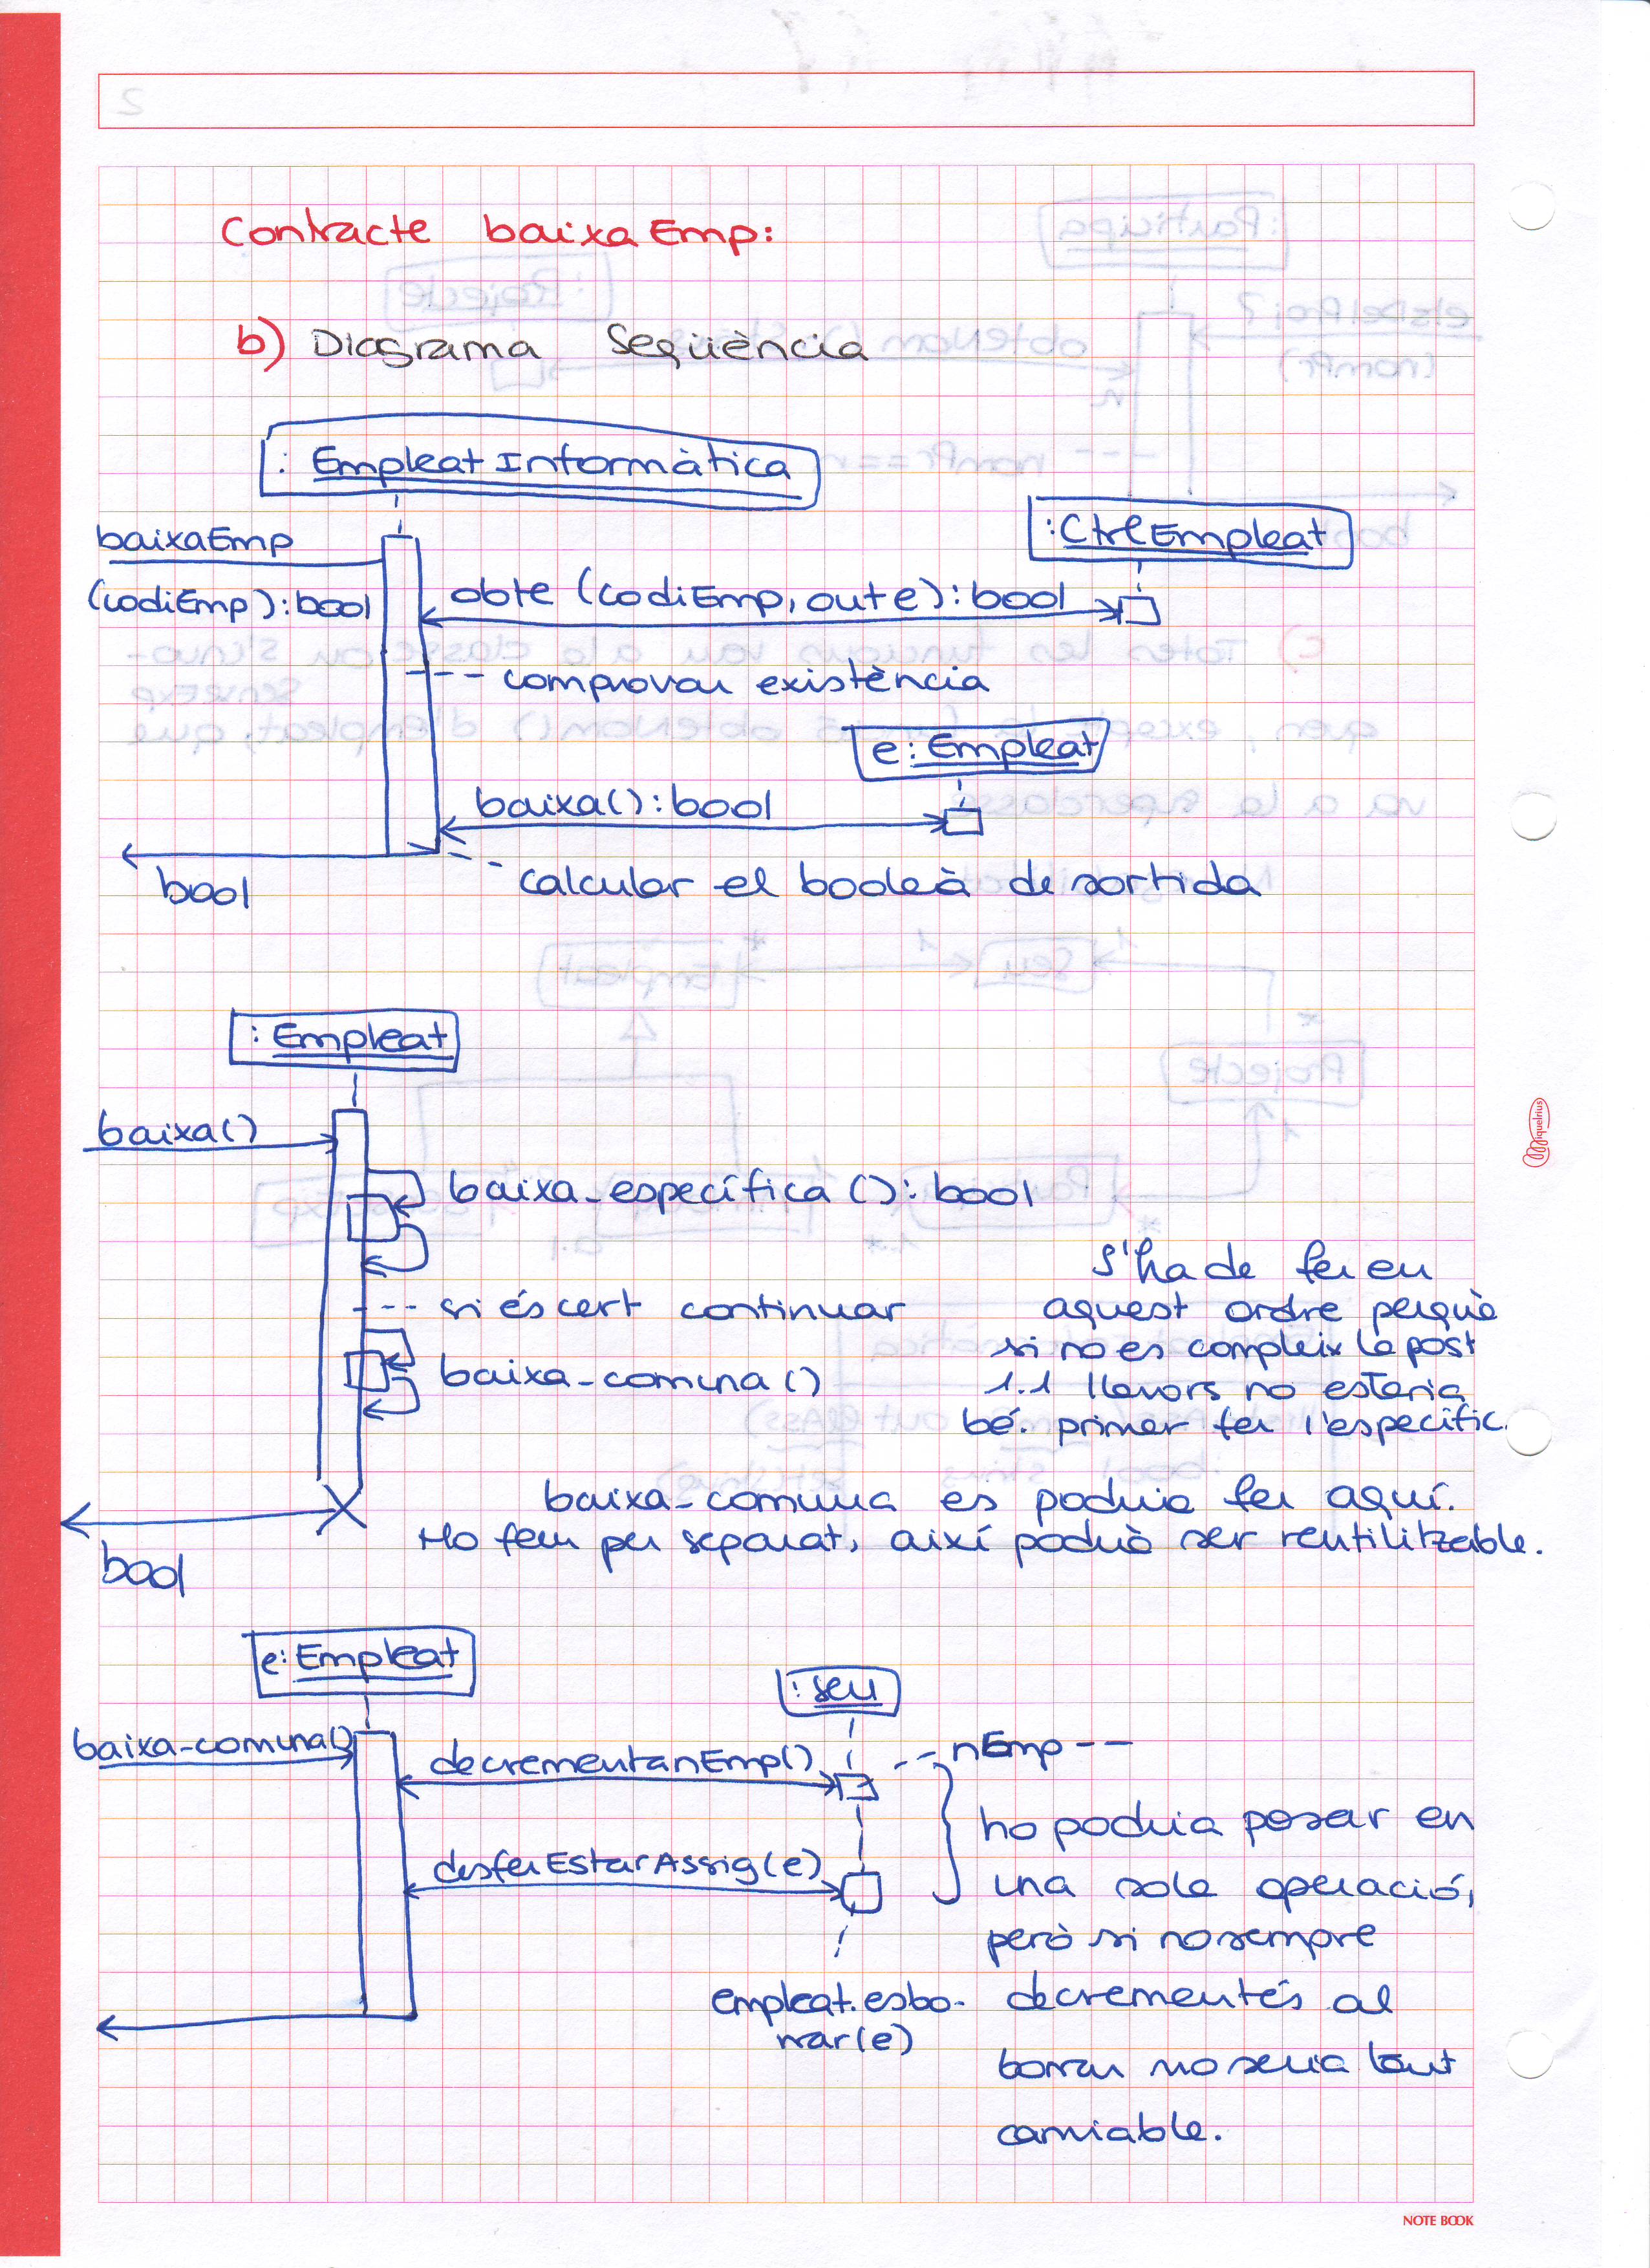 Contracte baixaEmp:
b) Diagrama Seqüència
: EmpleatInformàtica
:CtrlEmpleat
baixaEmp
(codiEmp):bool
obte (codiEmp, out e): bool
--- comprovar existència
e: Empleat
baixa(): bool
bool
-- calcular el booleà de sortida
: Empleat
baixa()
baixa_específica (): bool
--- si és cert continuar
baixa-comuna ()
S'ha de fer en
aquest ordre perquè
si no es compleix la post
1.1 llavors no estaria
bé. primer fer l'específic.
baixa-comuna es podria fer aquí.
Ho fem per separat, així podrà ser reutilitzable.
bool
e: Empleat
: seu
baixa-comuna()
decrementanEmp()
-- nEmp --
desferEstarAssig(e)
ho podria posar en
una sola operació,
però si no sempre
decrementés al
borrar no seria tant
canviable.
empleat.esbo-
rrar(e)
miquelrius
NOTE BOOK